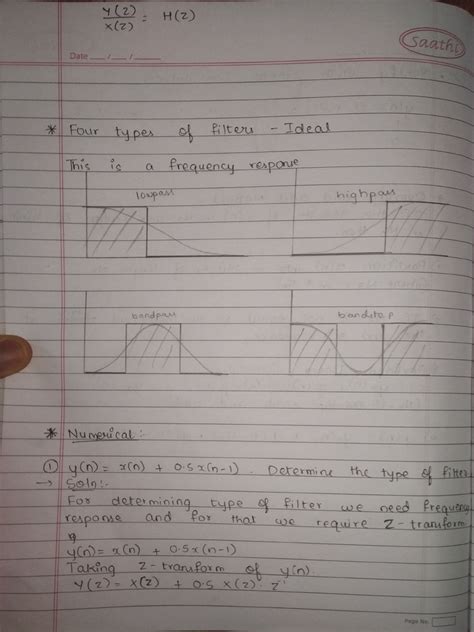 Y(z)
X(z) = H(z)
Saathi
Date __/__/__
* Four types of filters - Ideal
This is a frequency response
lowpass
highpass
bandpass
bandstop
* Numerical:-
① y(n) = x(n) + 0.5x(n-1). Determine the type of filter
→ Soln:-
For determining type of filter we need frequency
response and for that we require Z-transform
y(n) = x(n) + 0.5x(n-1)
Taking Z-transform of y(n)
Y(z) = X(z) + 0.5 X(z) z⁻¹
Page No.